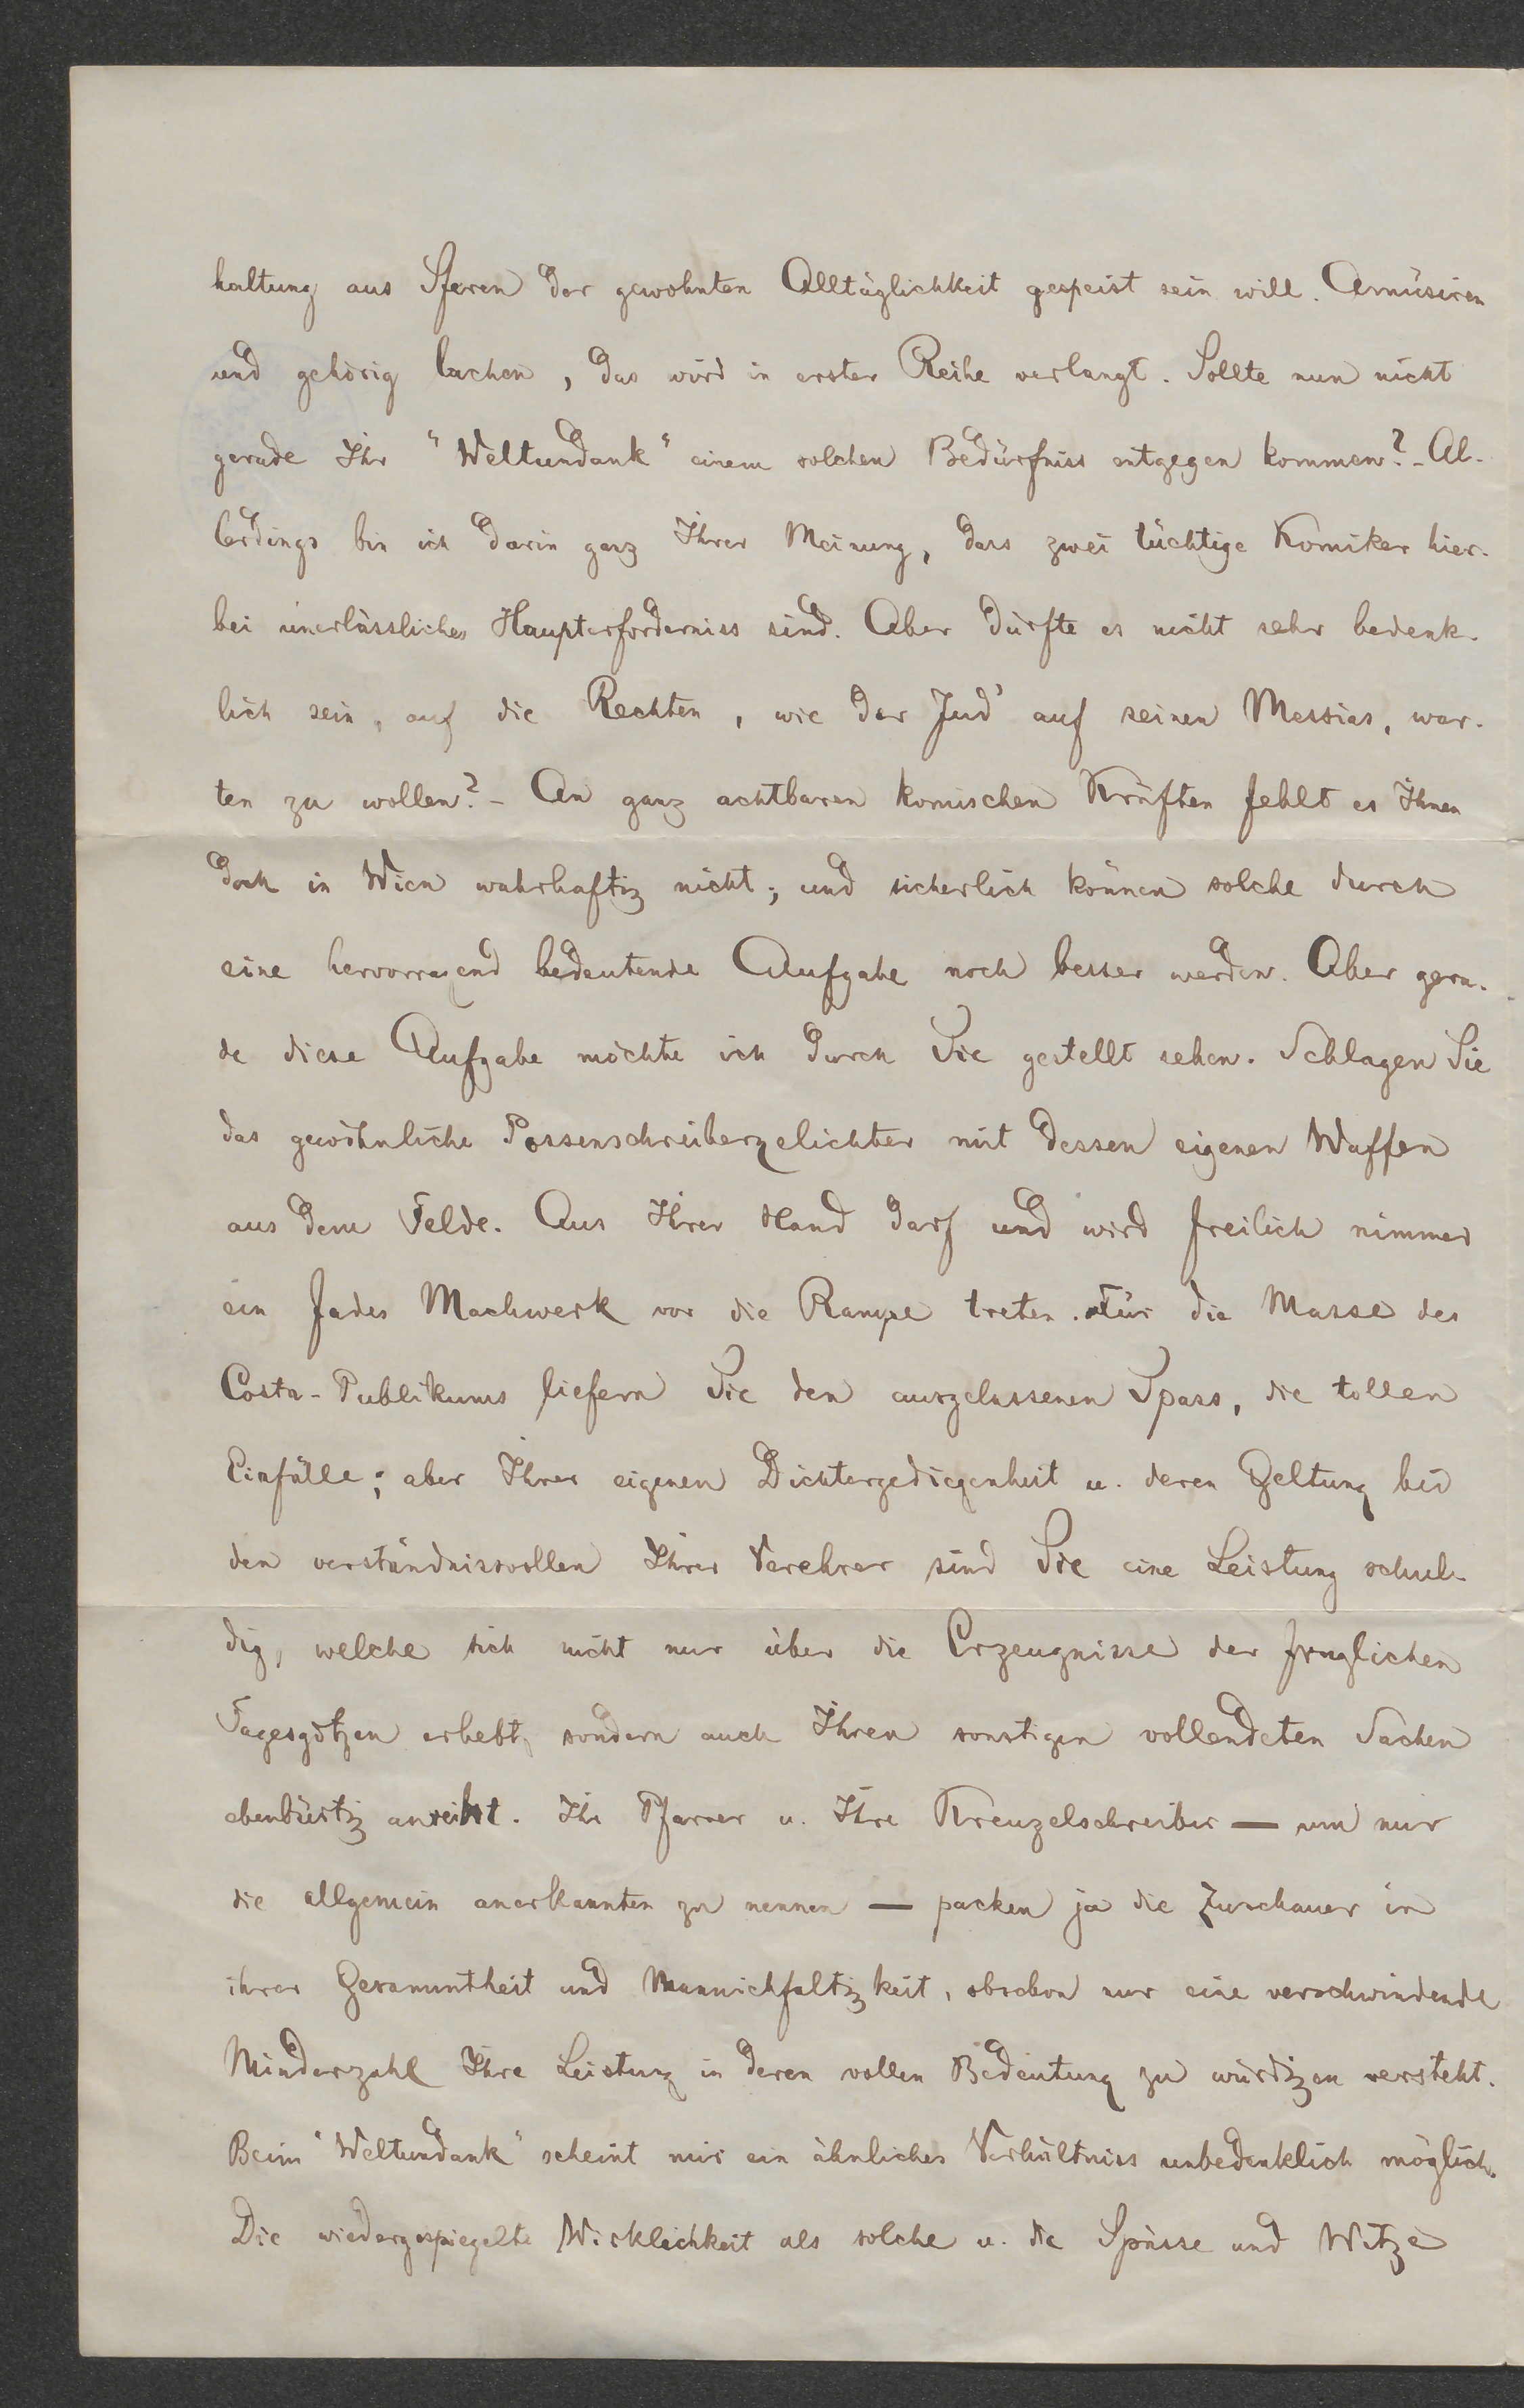 haltung aus Sferen der gewohnten Alltäglichkeit gespeist sein will. Amüsiren
und gehörig lachen, das wird in erster Reihe verlangt. Sollte nun nicht
gerade Ihr "Weltundank" einem solchen Bedürfniss entgegen kommen? - Al-
lerdings bin ich darin ganz Ihrer Meinung, dass zwei tüchtige Komiker hier-
bei unerlässliches Haupterforderniss sind. Aber dürfte es nicht sehr bedenk-
lich sein, auf die Rechten, wie der Jud' auf seinen Messias, war-
ten zu wollen? - An ganz achtbaren komischen Kräften fehlt es Ihnen
doch in Wien wahrhaftig nicht; und sicherlich können solche durch
eine hervorragend bedeutende Aufgabe noch besser werden. Aber gera-
de diese Aufgabe möchte ich durch Sie gestellt sehen. Schlagen Sie
das gewöhnliche Possenschreibergelichter mit dessen eigenen Waffen
aus dem Felde. Aus Ihrer Hand darf und wird freilich nimmer
ein fades Machwerk vor die Rampe treten. Für die Masse des
Costa-Publikums liefern Sie den ausgelassenen Spass, die tollen
Einfälle; aber Ihrer eigenen Dichtergediegenheit u. deren Geltung bei
den verständnissvollen Ihrer Verehrer sind Sie eine Leistung schul-
dig, welche sich nicht nur über die Erzeugnisse der fraglichen
Tagesgötzen erhebt, sondern auch Ihren sonstigen vollendeten Sachen
ebenbürtig anreiht. Ihr Pfarrer u. Ihre Kreuzelschreiber — um nur
die allgemein anerkannten zu nennen — packen ja die Zuschauer in
ihrer Gesammtheit und Mannichfaltigkeit, obschon nur eine verschwindende
Minderzahl Ihre Leistung in deren vollen Bedeutung zu würdigen versteht.
Beim "Weltundank" scheint mir ein ähnliches Verhältniss unbedenklich möglich.
Die wiedergespiegelte Wirklichkeit als solche u. die Spässe und Witze